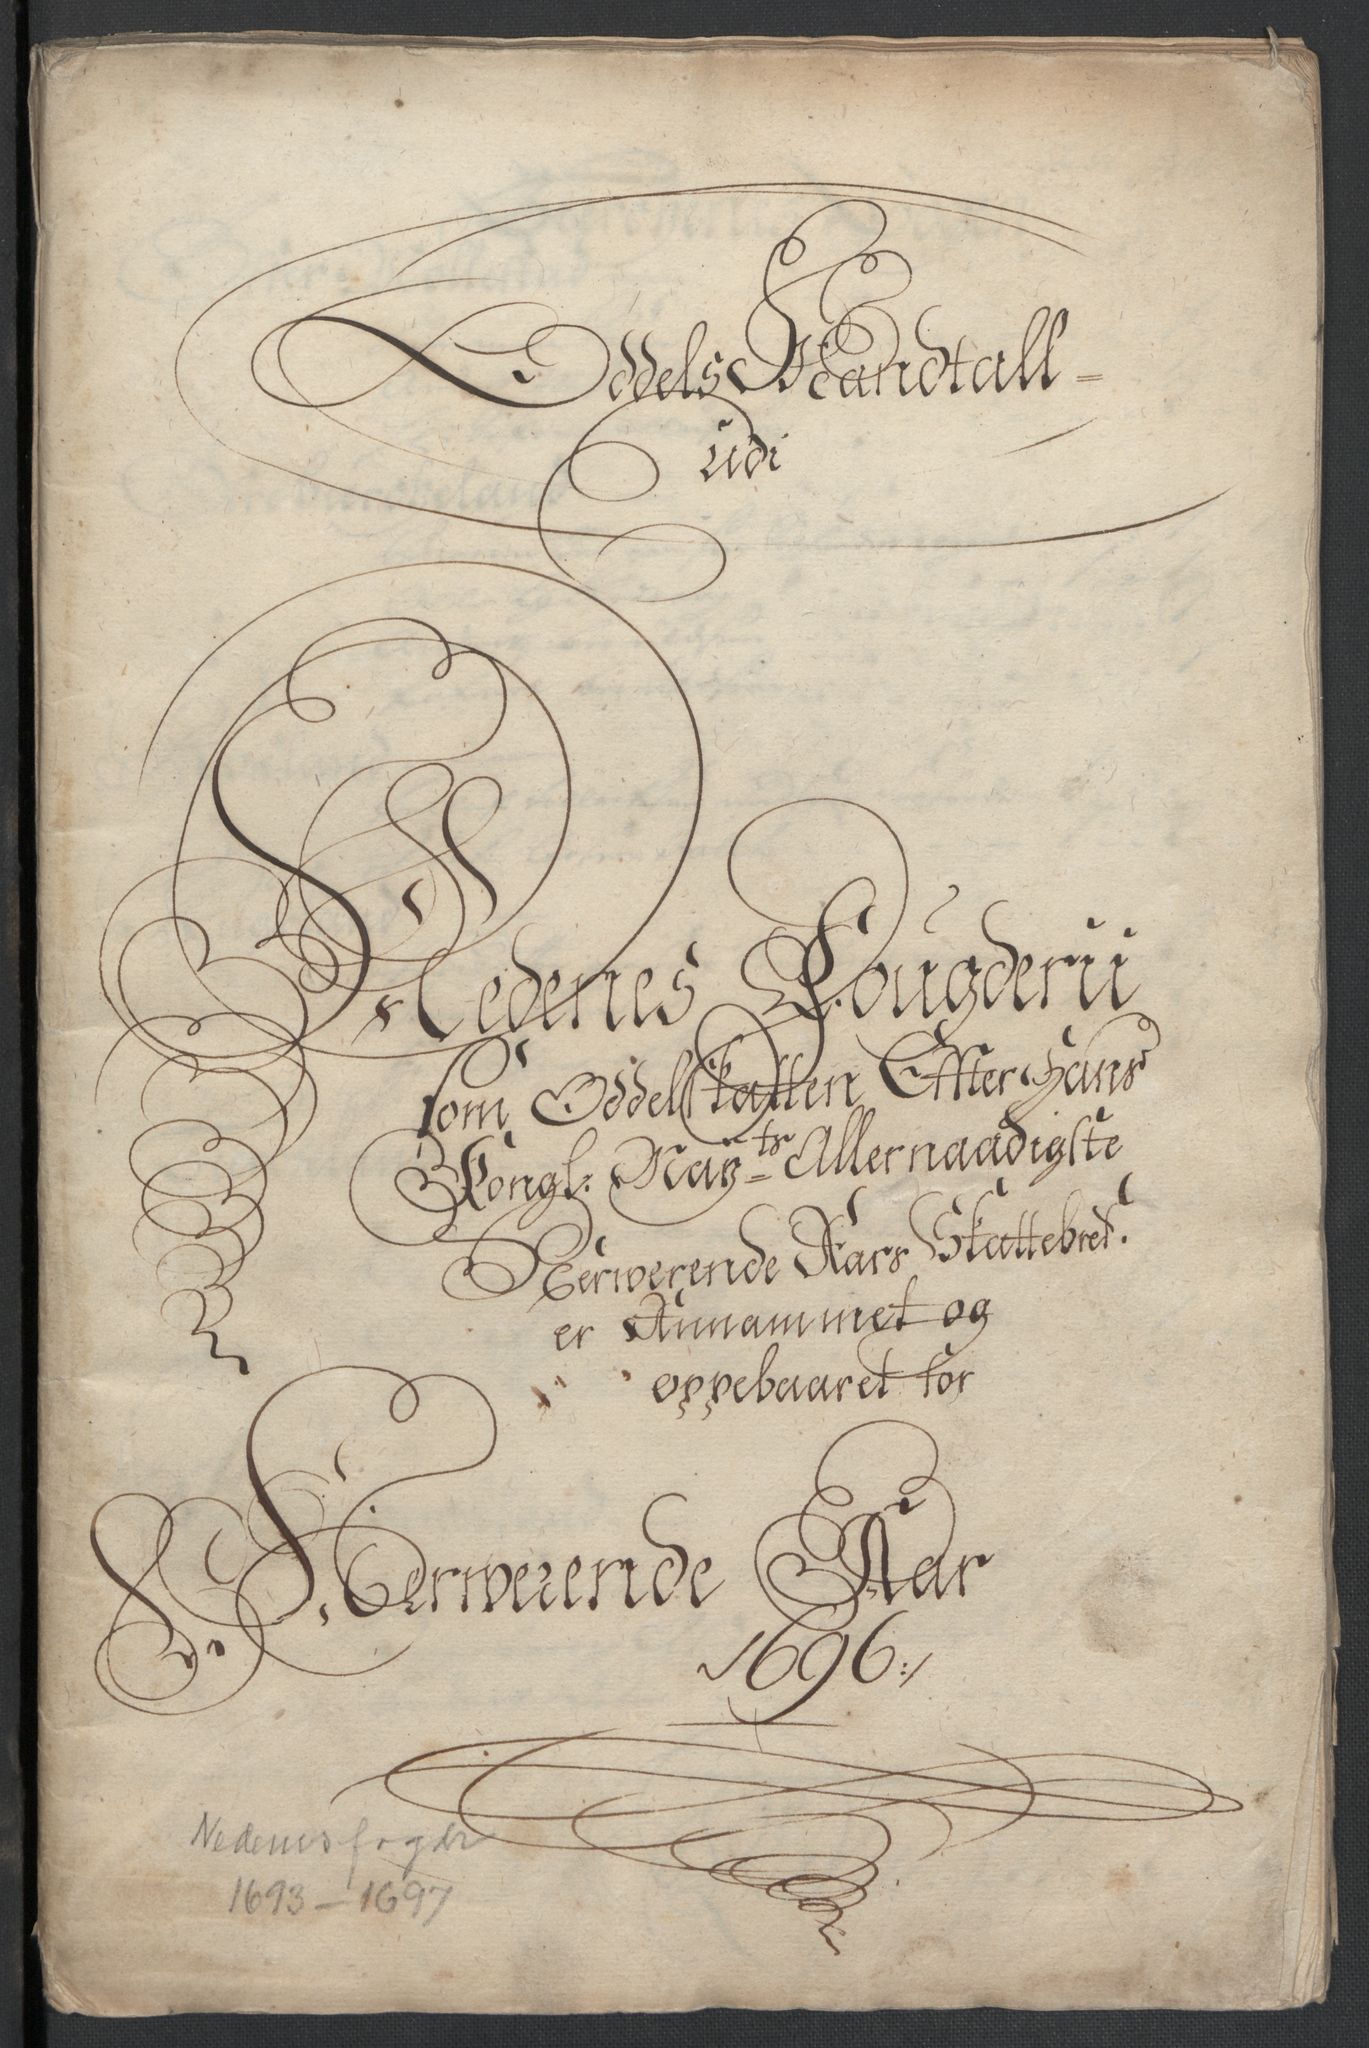 Oddels Mandtall=
udi
Nedenes Fougderii
som Oddelskatten Effter Hans
Kongl: May=ts Allernaadigste
Nerwerende Aars Skattebref:
er Annammet og
oppebaaret for
Nerwerende Aar
1696:/
Nedenes fogder
1693 - 1697